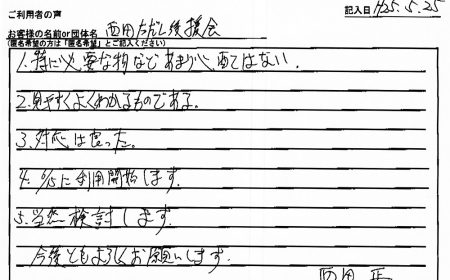 ご利用者の声
記入日 1/25.5.25
お客様の名前or団体名 西田ただし後援会
(匿名希望の方は「匿名希望」とご記入ください)
1.特に必要な物などあまり心当てはない.
2.見やすくよくわかるものである.
3.対応は良った.
4. 6/5に利用開始します.
5.当然検討します.
今後ともよろしくお願いします.
西田 正